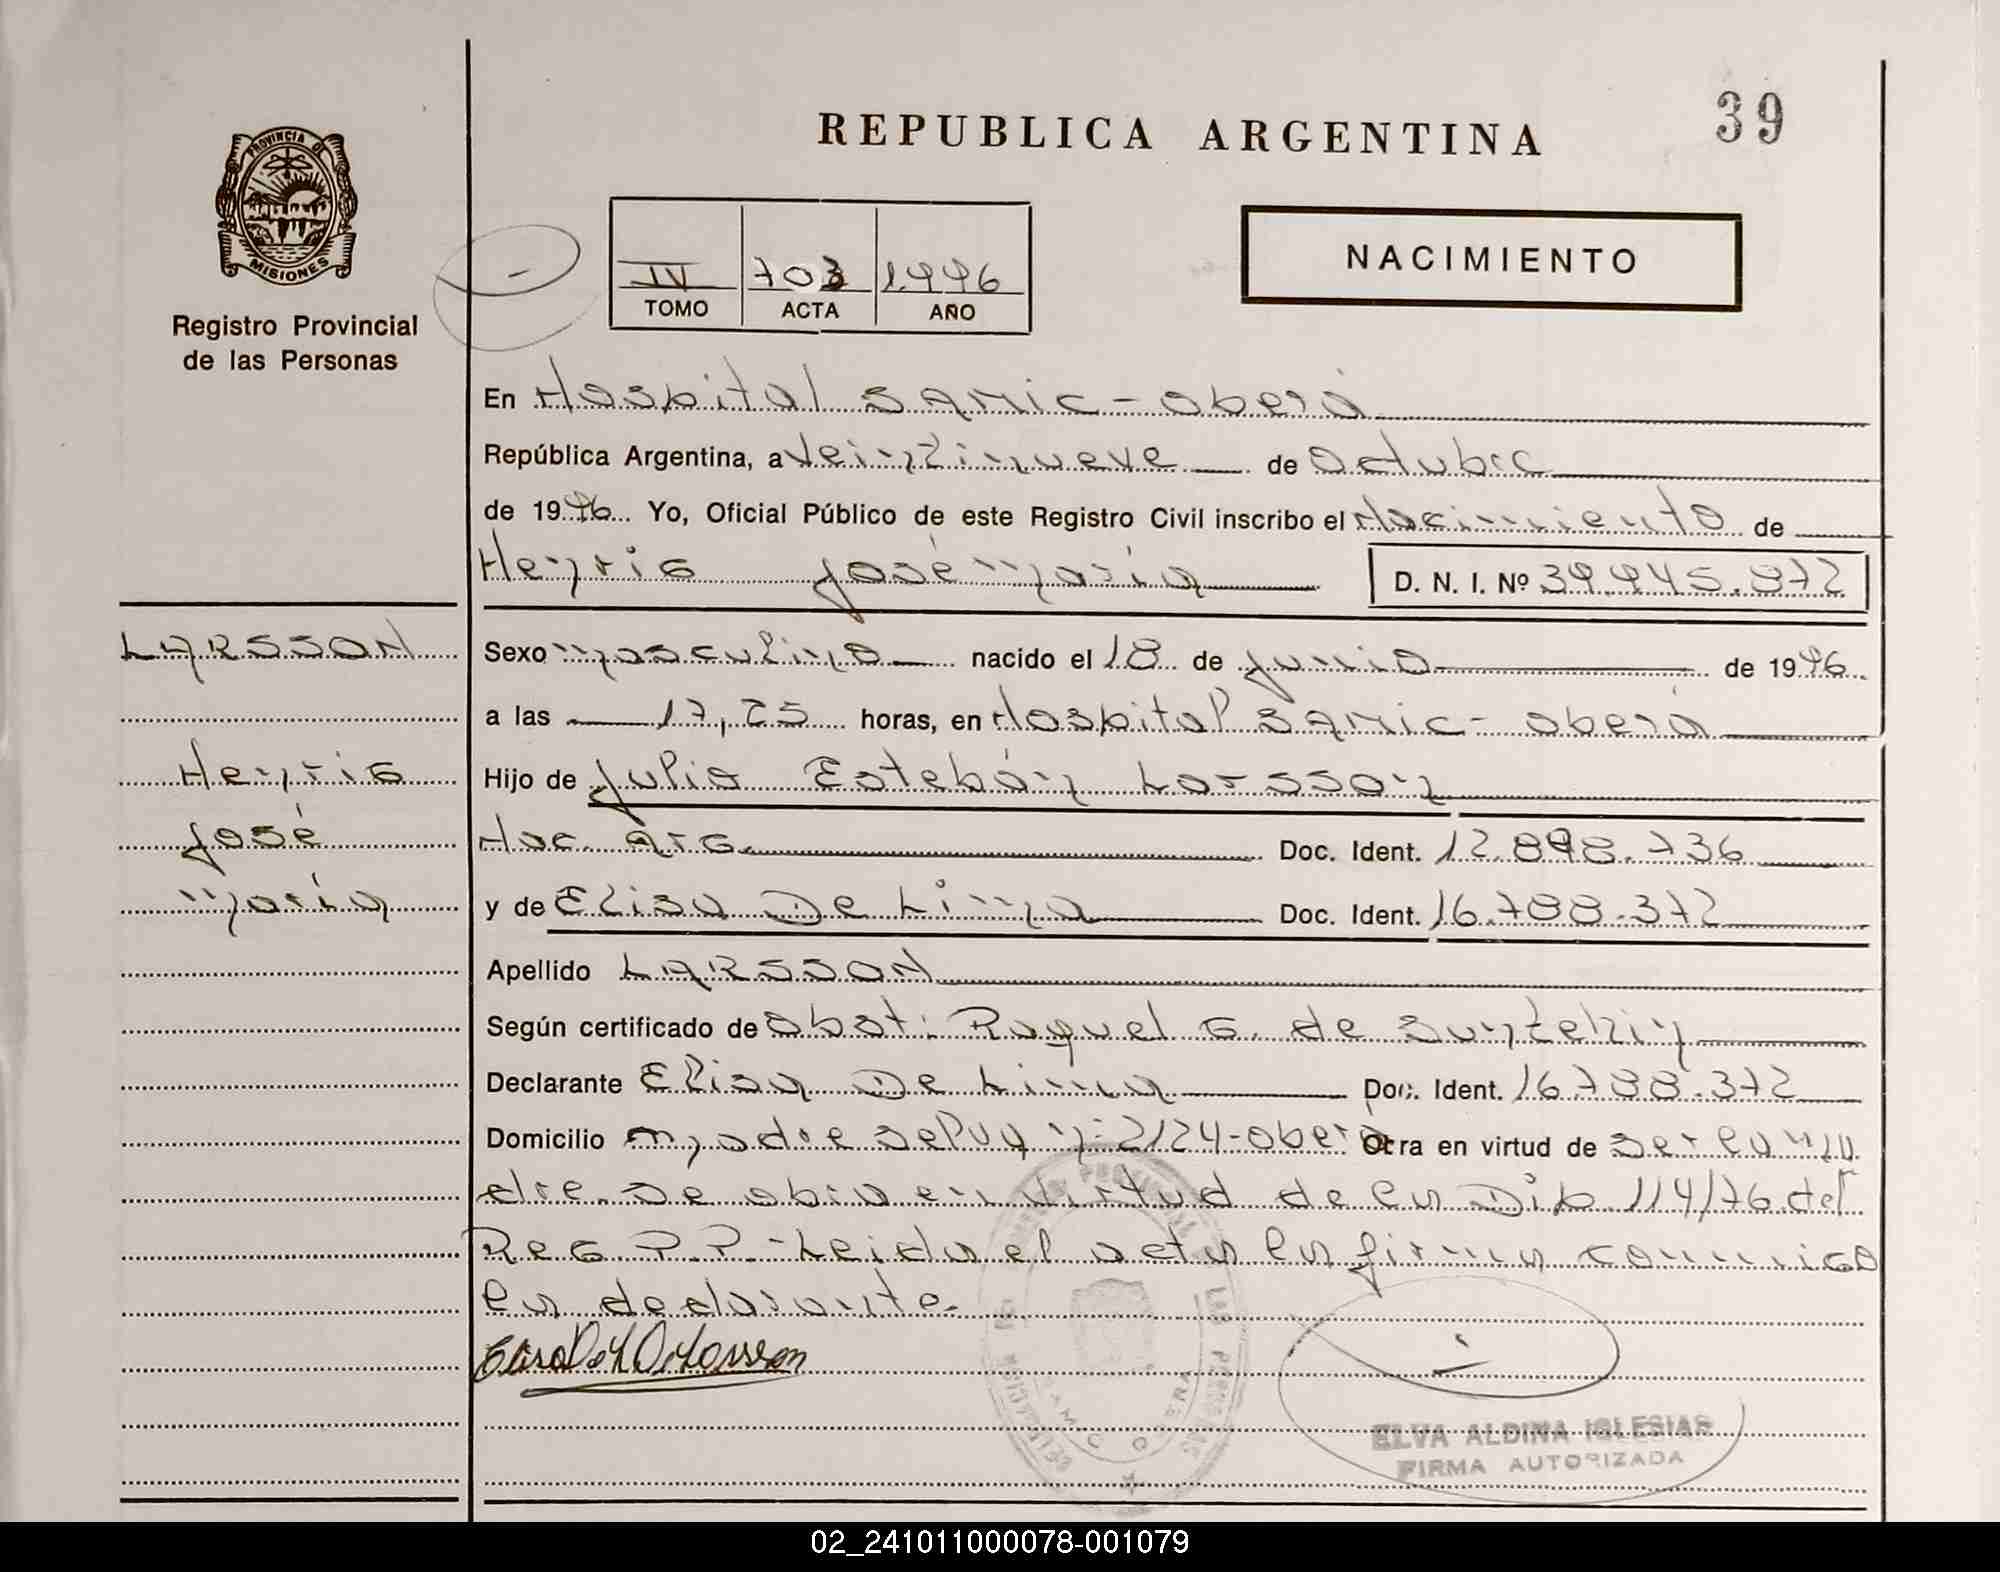 39
REPUBLICA ARGENTINA
PROVINCIA DE
MISIONES
Registro Provincial
de las Personas
IV 703 1996
TOMO ACTA AÑO
NACIMIENTO
En Hospital SAMIC - Oberá
República Argentina, a Veintinueve de Octubre
de 1996 Yo, Oficial Público de este Registro Civil inscribo el Nacimiento de
Henric José María D. N. I. Nº 39.945.872
LARSSON
Sexo masculino nacido el 18 de junio de 1996
a las 17,25 horas, en Hospital SAMIC - Oberá
Henric
Hijo de Julio Estebán Larsson
José
Nac. Arg. Doc. Ident. 12.898.736
María
y de Elisa De Lima Doc. Ident. 16.788.372
Apellido LARSSON
Según certificado de Obst. Raquel G. de
Declarante Elisa De Lima Doc. Ident. 16.788.372
Domicilio nº 2124 - Oberá Otra en virtud de ser la ma
dre. Se obra en virtud de la Dip 114/76 del
Reg P.P. - Leida el acta la firma conmigo
la declarante.
ELVA ALDINA IGLESIAS
FIRMA AUTORIZADA
02_241011000078-001079